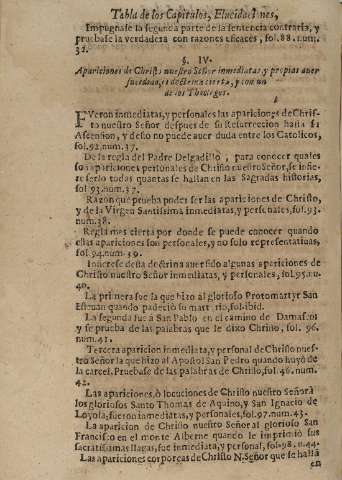 Tabla de los Capitulos, Elucidaciones,
Impugnase la segunda parte de la sentencia contraria, y
pruebase la verdadera con razones eficaces, fol. 88. num.
32.
§. IV.
Apariciones de Christo nuestro Señor inmediatas, y propias aver
sucedido, es doctrina cierta, y comun
de los Theologos.
FVeron inmediatas, y personales las apariciones de Chris-
to nuestro Señor despues de su Resurreccion hasta su
Ascension, y desto no puede aver duda entre los Catolicos,
fol. 92. num. 37.
De la regla del Padre Delgadillo, para conocer quales
son apariciones personales de Christo nuestro Señor, se infie-
re serlo todas quantas se hallan en las Sagradas historias,
fol. 93. num. 37.
Razon que prueba poder ser las apariciones de Christo,
y de la Virgen Santissima inmediatas, y personales, fol. 93.
num. 38.
Regla mas cierta por donde se puede conocer quando
estas apariciones son personales, y no solo representativas,
fol. 94. num. 39.
Infierese desta doctrina aver sido algunas apariciones de
Christo nuestro Señor inmediatas, y personales, fol. 95. nu.
40.
La primera fue la que hizo al glorioso Protomartyr San
Estevan quando padeciò su martyrio, fol. ibid.
La segunda fue à San Pablo en el camino de Damasco,
y se prueba de las palabras que le dixo Christo, fol. 96.
num. 41.
Tercera aparicion inmediata, y personal de Christo nues-
tro Señor la que hizo al Apostol San Pedro quando huyò de
la carcel. Pruebase de las palabras de Christo, fol. 46. num.
42.
Las apariciones, ò locuciones de Christo nuestro Señor à
los gloriosos Santo Thomas de Aquino, y San Ignacio de
Loyola, fueron inmediatas, y personales, fol. 97. num. 43.
La aparicion de Christo nuestro Señor al glorioso San
Francisco en el monte Alberne quando le imprimiò sus
sacratissimas llagas, fue inmediata, y personal, fol. 98. n. 44.
Las apariciones corporeas de Christo N. Señor que se hallã
en